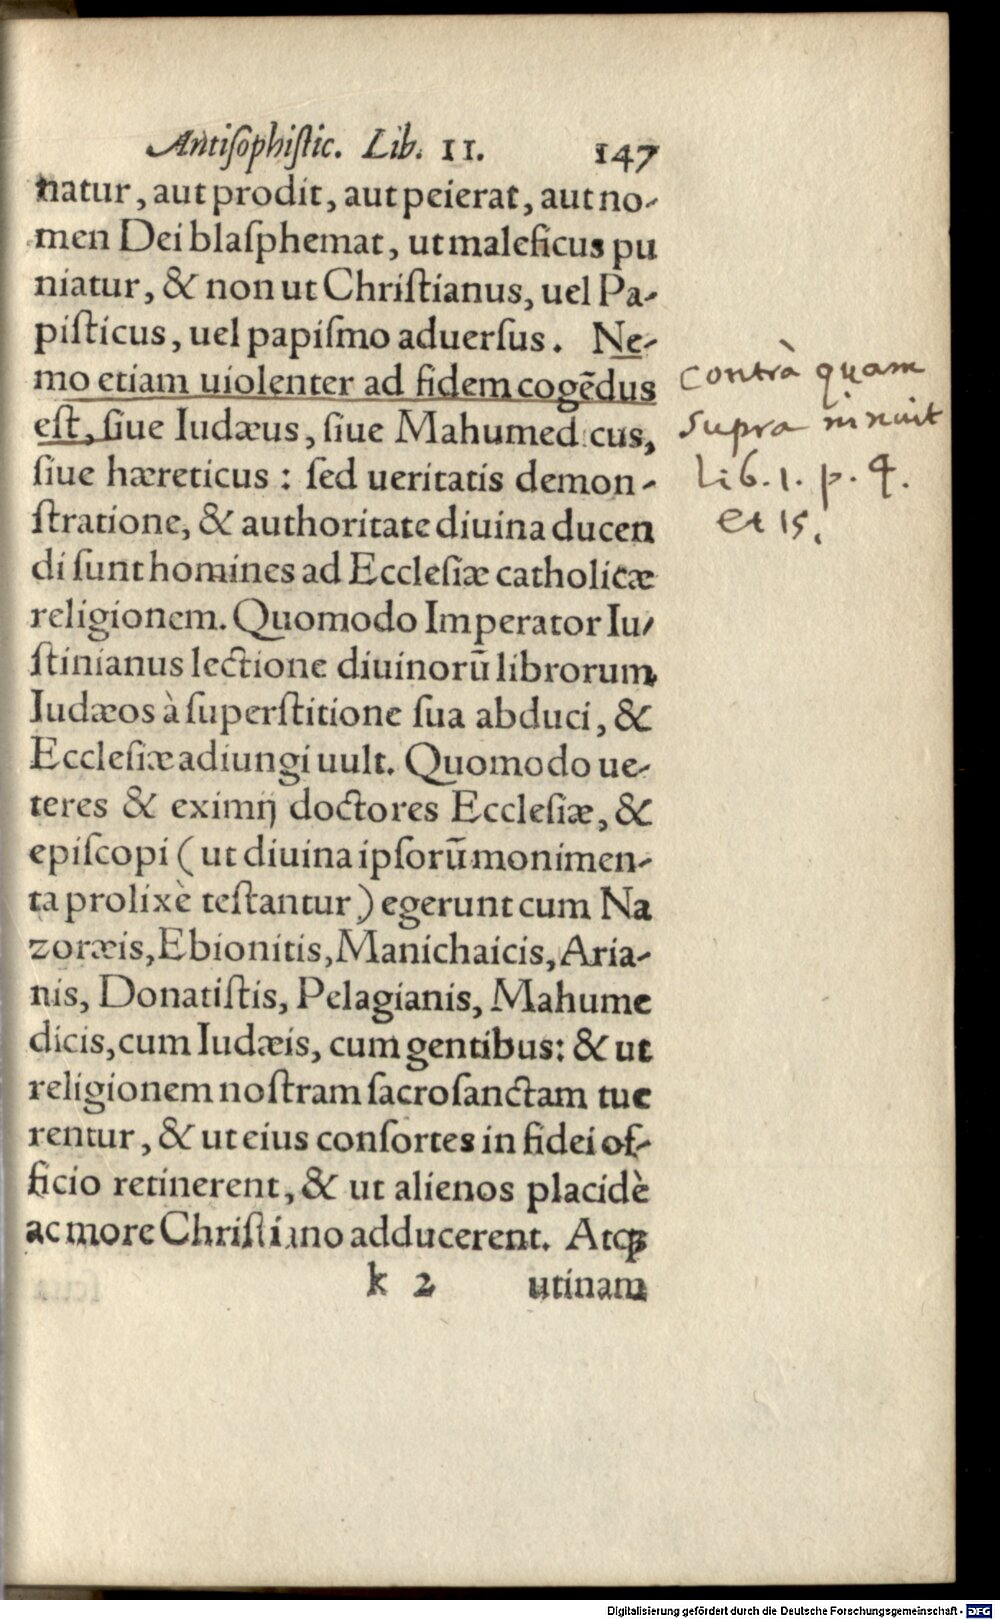 Antiſophiſtic. Lib. II. 147
natur, aut prodit, aut peierat, aut no-
men Dei blaſphemat, ut maleficus pu
niatur, & non ut Chriſtianus, uel Pa-
piſticus, uel papiſmo aduerſus. Ne-
mo etiam uiolenter ad fidem cogēdus
eſt, ſiue Iudæus, ſiue Mahumedicus,
ſiue hæreticus: ſed ueritatis demon-
ſtratione, & authoritate diuina ducen
di ſunt homines ad Eccleſiæ catholicæ
religionem. Quomodo Imperator Iu-
ſtinianus lectione diuinorū librorum
Iudæos à ſuperſtitione ſua abduci, &
Eccleſiæ adiungi uult. Quomodo ue-
teres & eximij doctores Eccleſiæ, &
epiſcopi (ut diuina ipſorū monimen-
ta prolixè teſtantur) egerunt cum Na
zoræis, Ebionitis, Manichaicis, Aria-
nis, Donatiſtis, Pelagianis, Mahume
dicis, cum Iudæis, cum gentibus: & ut
religionem noſtram ſacroſanctam tue
rentur, & ut eius conſortes in fidei of-
ficio retinerent, & ut alienos placidè
ac more Chriſtiano adducerent. Atqꝫ
k 2 utinam
contrà quam
supra innuit
Lib. 1. p. 9.
et 15.
Digitalisierung gefördert durch die Deutsche Forschungsgemeinschaft - DFG